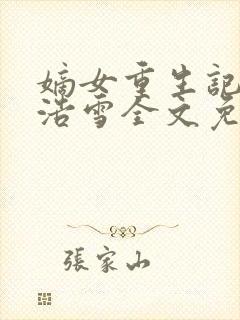 嫡女重生記
浩雪全文免
張家山